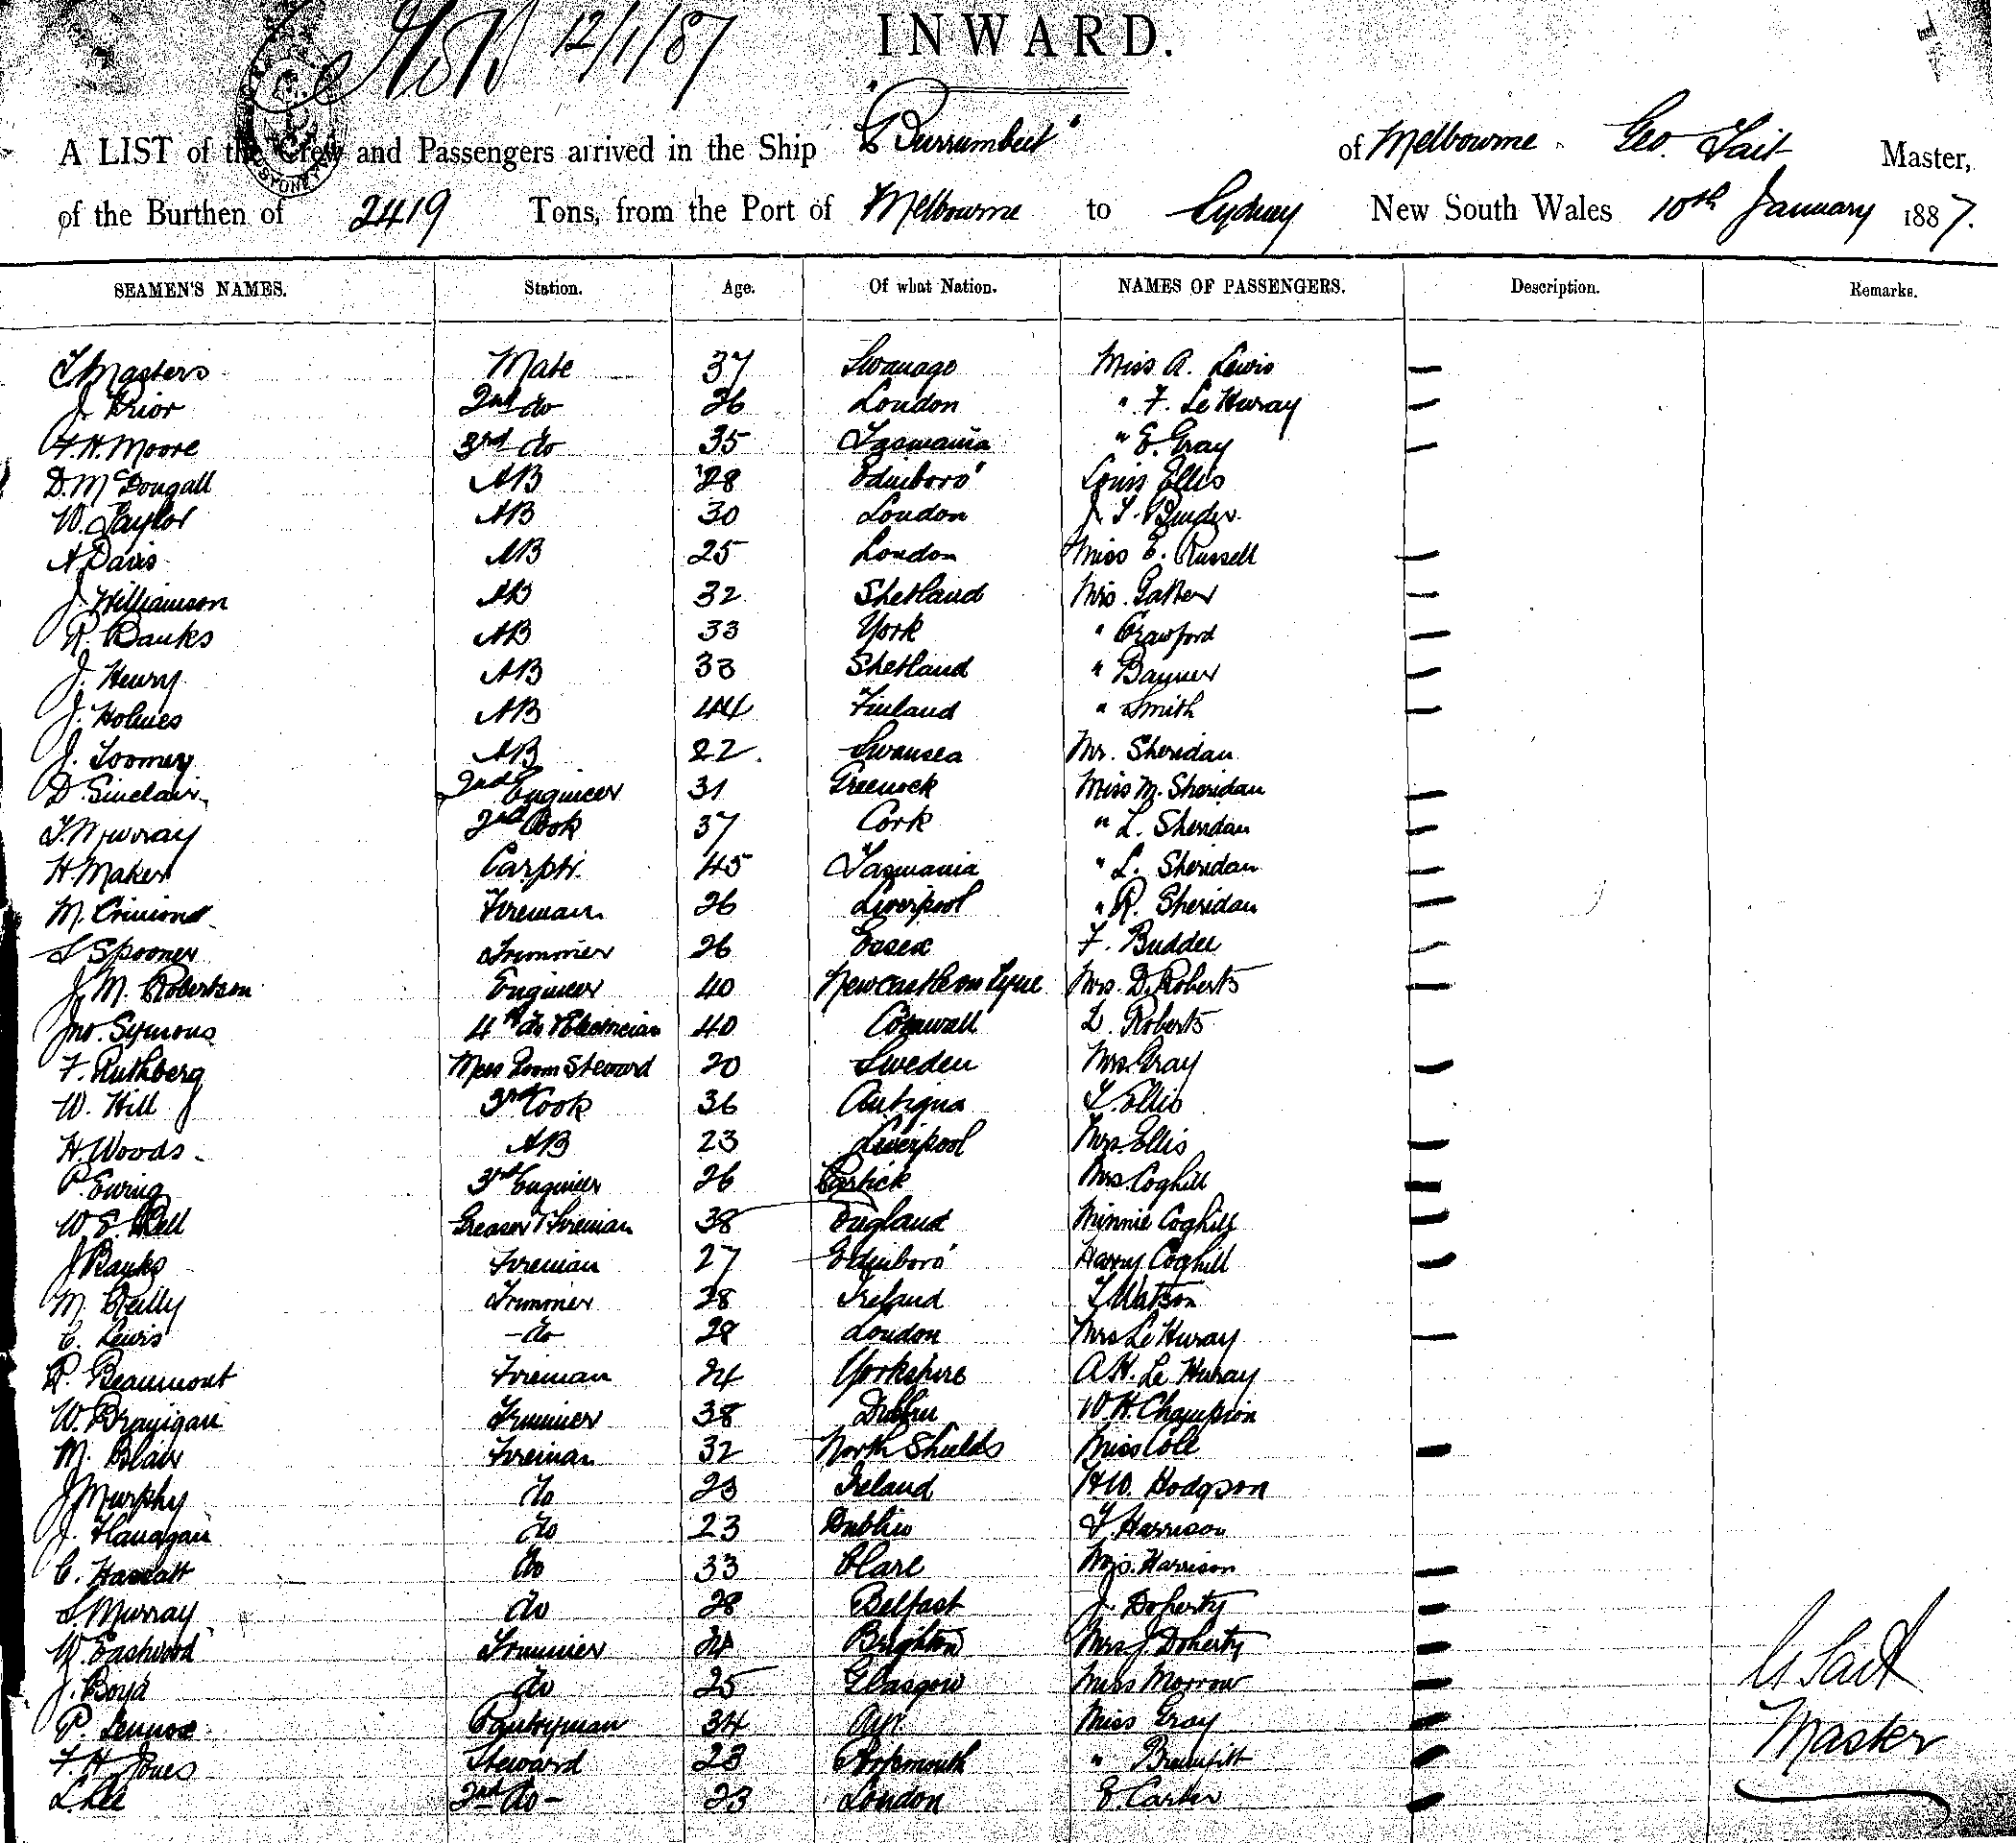 12/1/87
INWARD.
A LIST of the Crew and Passengers arrived in the Ship "Burrumbeet" of Melbourne. Geo. Tait Master,
of the Burthen of 2419 Tons, from the Port of Melbourne to Sydney New South Wales 10th January 1887.
SEAMEN'S NAMES. Station. Age. Of what Nation. NAMES OF PASSENGERS. Description. Remarks.
T Masters Mate 37 Swanage Miss A. Lewis —
J. Prior 2nd do 26 London " F. Le Huray —
F. H. Moore 3rd do 35 Tasmania " E. Gray —
D. McDougall AB 28 Edinboro' Louis Ellis
W. Taylor AB 30 London J. T.
A Davis AB 25 London Miss E. Russell —
J. Williamson AB 32 Shetland Mrs. —
R. Banks AB 33 York " Crawford —
J. Henry AB 33 Shetland " Banner —
J. Holmes AB 44 Finland " Smith —
J. Toomey AB 22. Swansea Mr. Sheridan
D. Sinclair 2nd Engineer 31 Greenock Miss M. Sheridan —
T. Murray 2nd Cook 37 Cork " L. Sheridan —
H Maker Carptr. 45 Tasmania " L. Sheridan —
M. Fireman 26 Liverpool " R. Sheridan —
S Spooner Trimmer 26 Essex F. Buddee —
J. M. Robertson Engineer 40 Newcastle on Tyne Mrs. D. Roberts —
Jno. Symons 4th do & Electrician 40 Cornwall D. Roberts
F. Ruthberg Mess Room Steward 20 Sweden Mrs. Gray —
W. Hill 3rd Cook 36 Antigua T. Ellis
H. Woods AB 23 Liverpool Mrs. Ellis —
P. Ewing 3rd Engineer 26 Mrs. Coghill —
W. E. Bell Greaser & Fireman 38 England Minnie Coghill —
J Banks Fireman 27 Edinboro' Harry Coghill —
M. Reilly Trimmer 28 Ireland T. Watson
C. Lewis - do - 28 London Mrs Le Huray —
R. Beaumont Fireman 24 Yorkshire A. H. Le Huray
W. Branigan Trimmer 38 Dublin W. H. Champion
M. Blair Fireman 32 North Shields Miss Cole —
J Murphy do 23 Ireland H. W. Hodgson
J. Flanagan do 23 Dublin T Harrison
C. do 33 Clare Mrs. Harrison —
S. Murray do 28 Belfast J. Doherty —
W. Eastwood Trimmer 24 Brighton Mrs J Doherty —
J. Boyd do 25 Glasgow Miss Morrow —
P. Lennox Pantryman 34 Ayr Miss Gray —
F. H. Jones Steward 23 Portsmouth " —
L. Lee 2nd do - 23 London E. Carter —
G Tait
Master